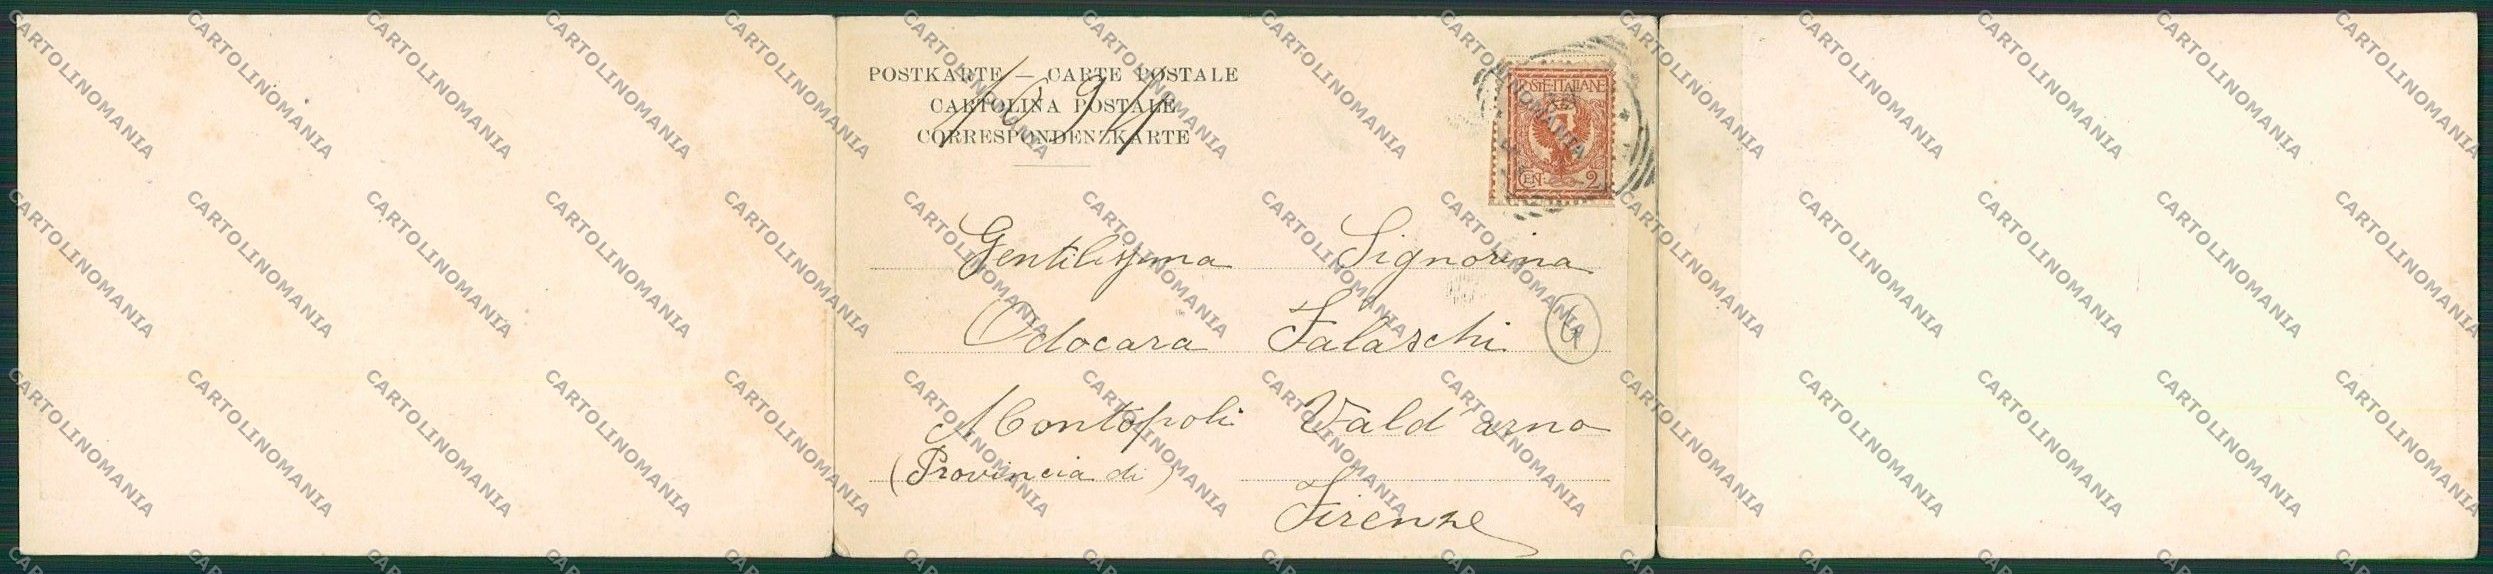 POSTKARTE — CARTE POSTALE
CARTOLINA POSTALE
CORRESPONDENZKARTE
POSTE ITALIANE
CENT. 2
Gentilissima Signorina
Odocara Falaschi
Montopoli Vald'arno
(Provincia di)
Firenze
CARTOLINOMANIA